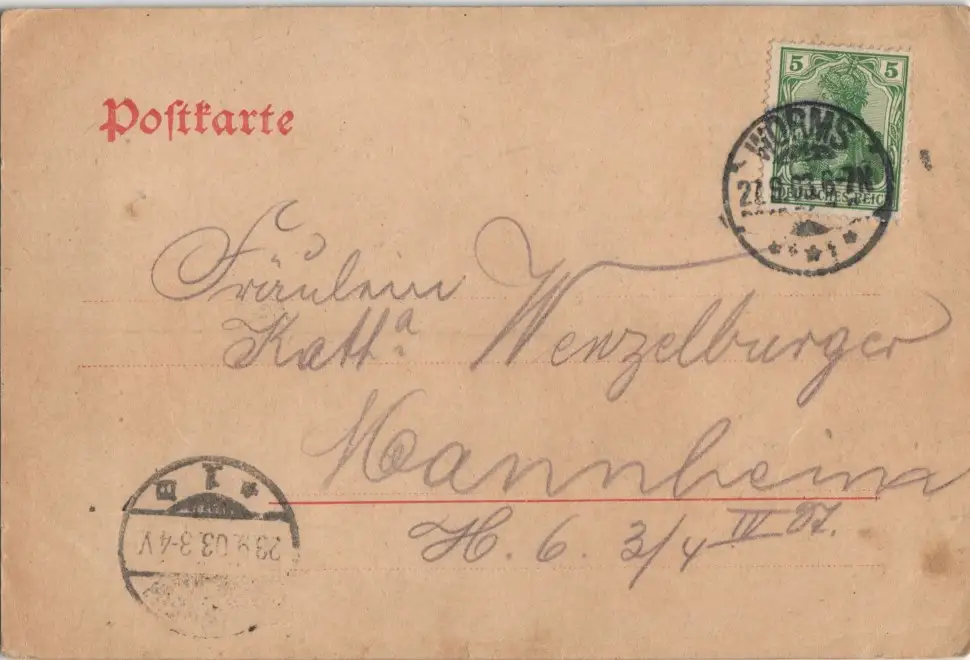 Postkarte
5 5
DEUTSCHES REICH
WORMS
27.9.03.6-7N
Fräulein
Kattª. Wenzelburger
Mannheim
H. 6. 3/4 IV St.
28.9.03.3-4V